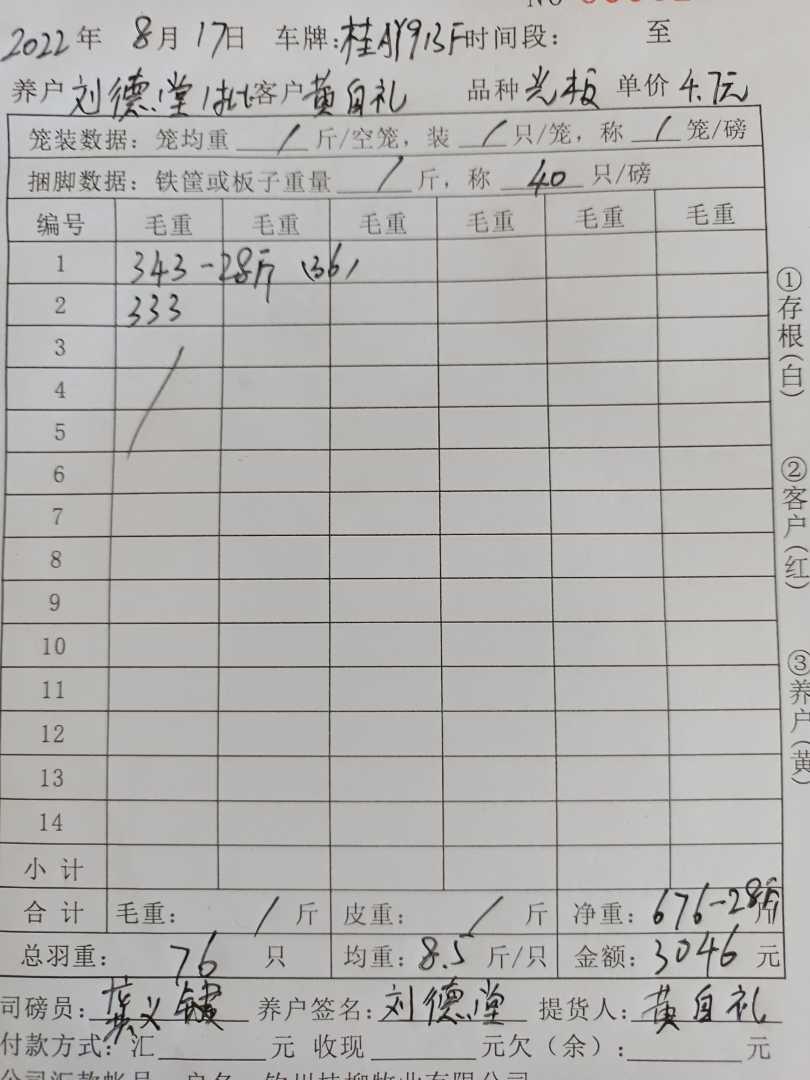 NO
2022年 8月17日 车牌:桂 913F时间段: 至
养户 刘德堂 1批 客户 黄自礼 品种 光板 单价 4.7元
笼装数据: 笼均重 / 斤/空笼, 装 / 只/笼, 称 / 笼/磅
捆脚数据: 铁筐或板子重量 / 斤, 称 40 只/磅
编号 毛重 毛重 毛重 毛重 毛重 毛重
1 343-28斤 (36)
2 333
3
4
5
6
7
8
9
10
11
12
13
14
小计
合计 毛重: / 斤 皮重: / 斤 净重: 676-28斤 斤
总羽重: 76 只 均重: 8.5 斤/只 金额: 3046 元
司磅员: 义 养户签名: 刘德堂 提货人: 黄自礼
付款方式: 汇 元 收现 元欠(余): 元
公司汇款帐号 户名 钦州桂柳牧业有限公司
①存根(白)
②客户(红)
③养户(黄)